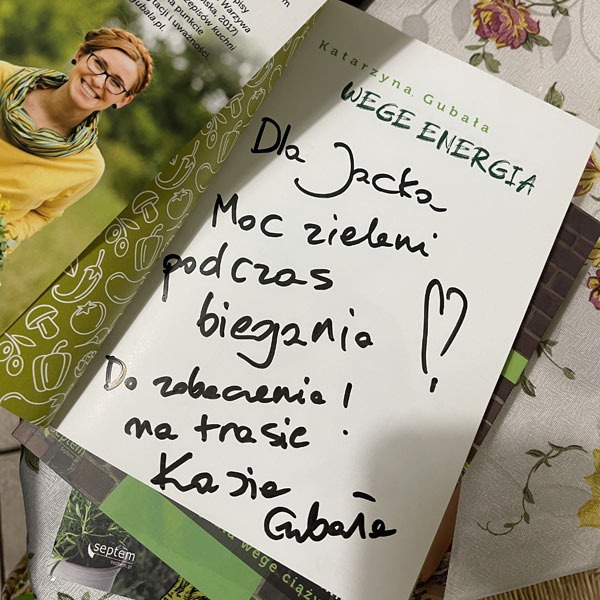 pisy
Warzywa
lska, 2017)
rzepisów kuchni
na punkcie
tacji i uważności.
gubala.pl.
Katarzyna Gubała
WEGE ENERGIA
Dla Jacka
Moc zieleni
podczas
biegania
Do zobaczenia!
na trasie
Kasia
Gubała
septem
septem
septem.pl
wege ciąży